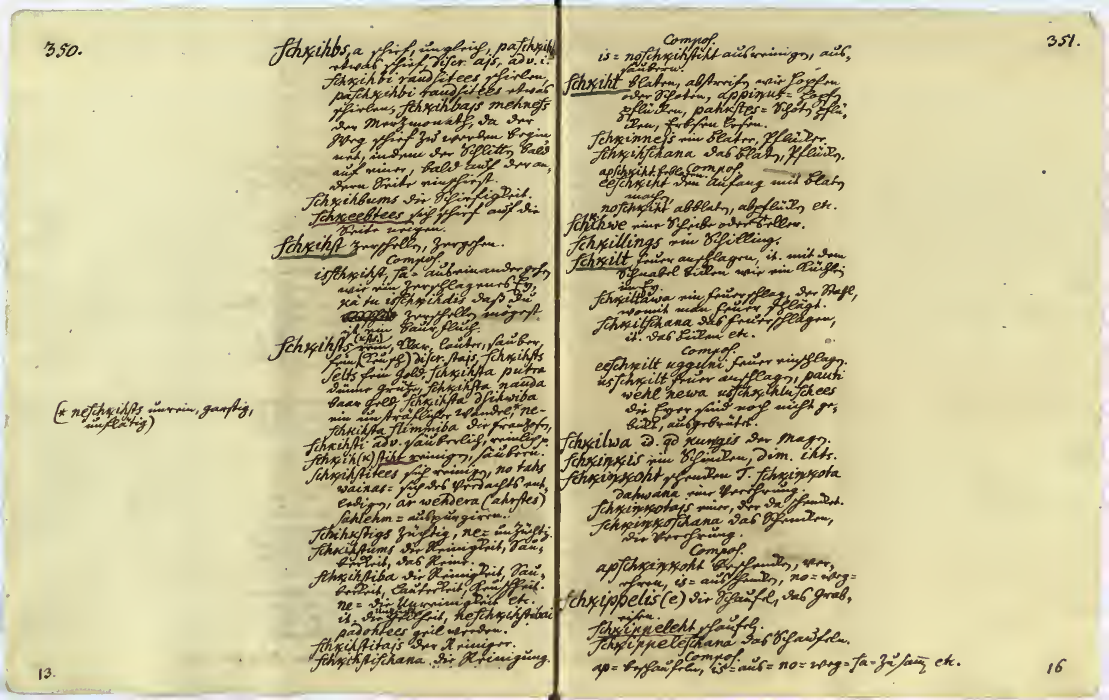 350.
schķihbs, a schief, ungleich, paschķihbs
etwas schief. Discr. ajs, adv. i.
schķihbi raudsitees schielen,
paschķihbi raudsitees etwas
schielen, schķihbajs mehness
der Mertzmonath, da der
Weg schief zu werden begin
net, indem der Schlitten bald
auf einer, bald auf der an,
dern Seite einschießt.
schķihbums die Schiefigkeit.
schķeebtees sich schief auf die
Seite neigen.
schķihst zerschellen, zergehen.
Compos.
isschķihst, sa= auseinander gehen
wie ein zerschlagenes Ey,
ka tu isschķihdis daß du
zerschellen mögest.
ist ein Baur fluch.
schķihsts (xsts) rein, klar, lauter, sauber,
fein (keusch) discr. stajs, schķihsts
selts fein gold, schķihsta putra
dünne Grütz, schķihsta nauda
baar geld, schķihsta dsihwiba
ein unsträflicher wandel, ne=
schķihsta slimmiba die frantzosen,
schķihsti adv. säuberlich, reinlich.
schķih(x)stiht reinigen, säubern.
schķihstitees sich reinigen, no tahs
wainas= sich des Verdachts ent,
ledigen, ar wehdera (ahrstes)
sahlehm= auspurgiren.
schķihstigs züchtig, ne= unzüchtig.
schķihstums die Reinigkeit, Sau,
berkeit, das Reine.
schķihstiba die Reinigkeit, Sau,
berkeit, Lauterkeit, Keuschheit.
ne= die Unreinigkeit etc.
it. die Geilheit, neschķihstibai
padohtees geil werden.
schķihstitajs der Reiniger.
schķihstischana die Reinigung.
(* neschķihsts unrein, garstig,
unflätig)
13.
351.
Compos.
is= noschķihstiht ausreinigen, aus,
säubern.
schķiht blaten, abstreifen wie Hopfen
oder Schoten, appiņus= Hopfen
pflücken, pahkstes= Schoten pflü,
cken, Erbsen lesen.
schķinnejs ein blater, Pflücker.
schķihschana das blaten, Pflücken.
Compos.
eeschķiht den Anfang mit blaten
machen.
noschķiht abblaten, abpflücken etc.
schķihwe eine Scheibe oder Teller.
schķillings ein Schilling.
schķilt feuer anschlagen, it. mit dem
Schnabel bicken wie ein Küchlein
im Ey.
schķiltawa ein feuerschlag, der Stahl,
womit man feuer schlägt.
schķilschana das feuerschlagen,
it. das bicken etc.
Compos.
eeschķilt ugguni feuer einschlagen.
usschķilt feuer anschlagen, pauti
wehl newa usschķihluschees
die Eyer sind noch nicht ge,
bickt, ausgebrütet.
schķilwa id. qd kungis der Magen.
schķinķis ein Schincken, Dim. ihts.
schķinķoht schencken T. schķinķota
dahwana eine Verehrung.
schķinķotajs einer, der da schencket.
schķinķoschana das Schencken,
die Verehrung.
Compos.
apschķinķoht beschencken, ver,
ehren, is= ausschencken, no= weg=
schķippelis (e) die Schaufel, das Grab,
eisen.
schķippeleht schaufeln.
schķippeleschana das Schaufeln.
Compos.
ap= beschaufeln, is= aus= no= weg= sa= zusam̅ etc.
16